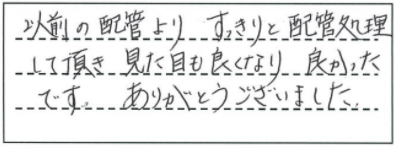 以前の配管より すっきりと配管処理
して頂き 見た目も良くなり 良かった
です。 ありがとうございました。